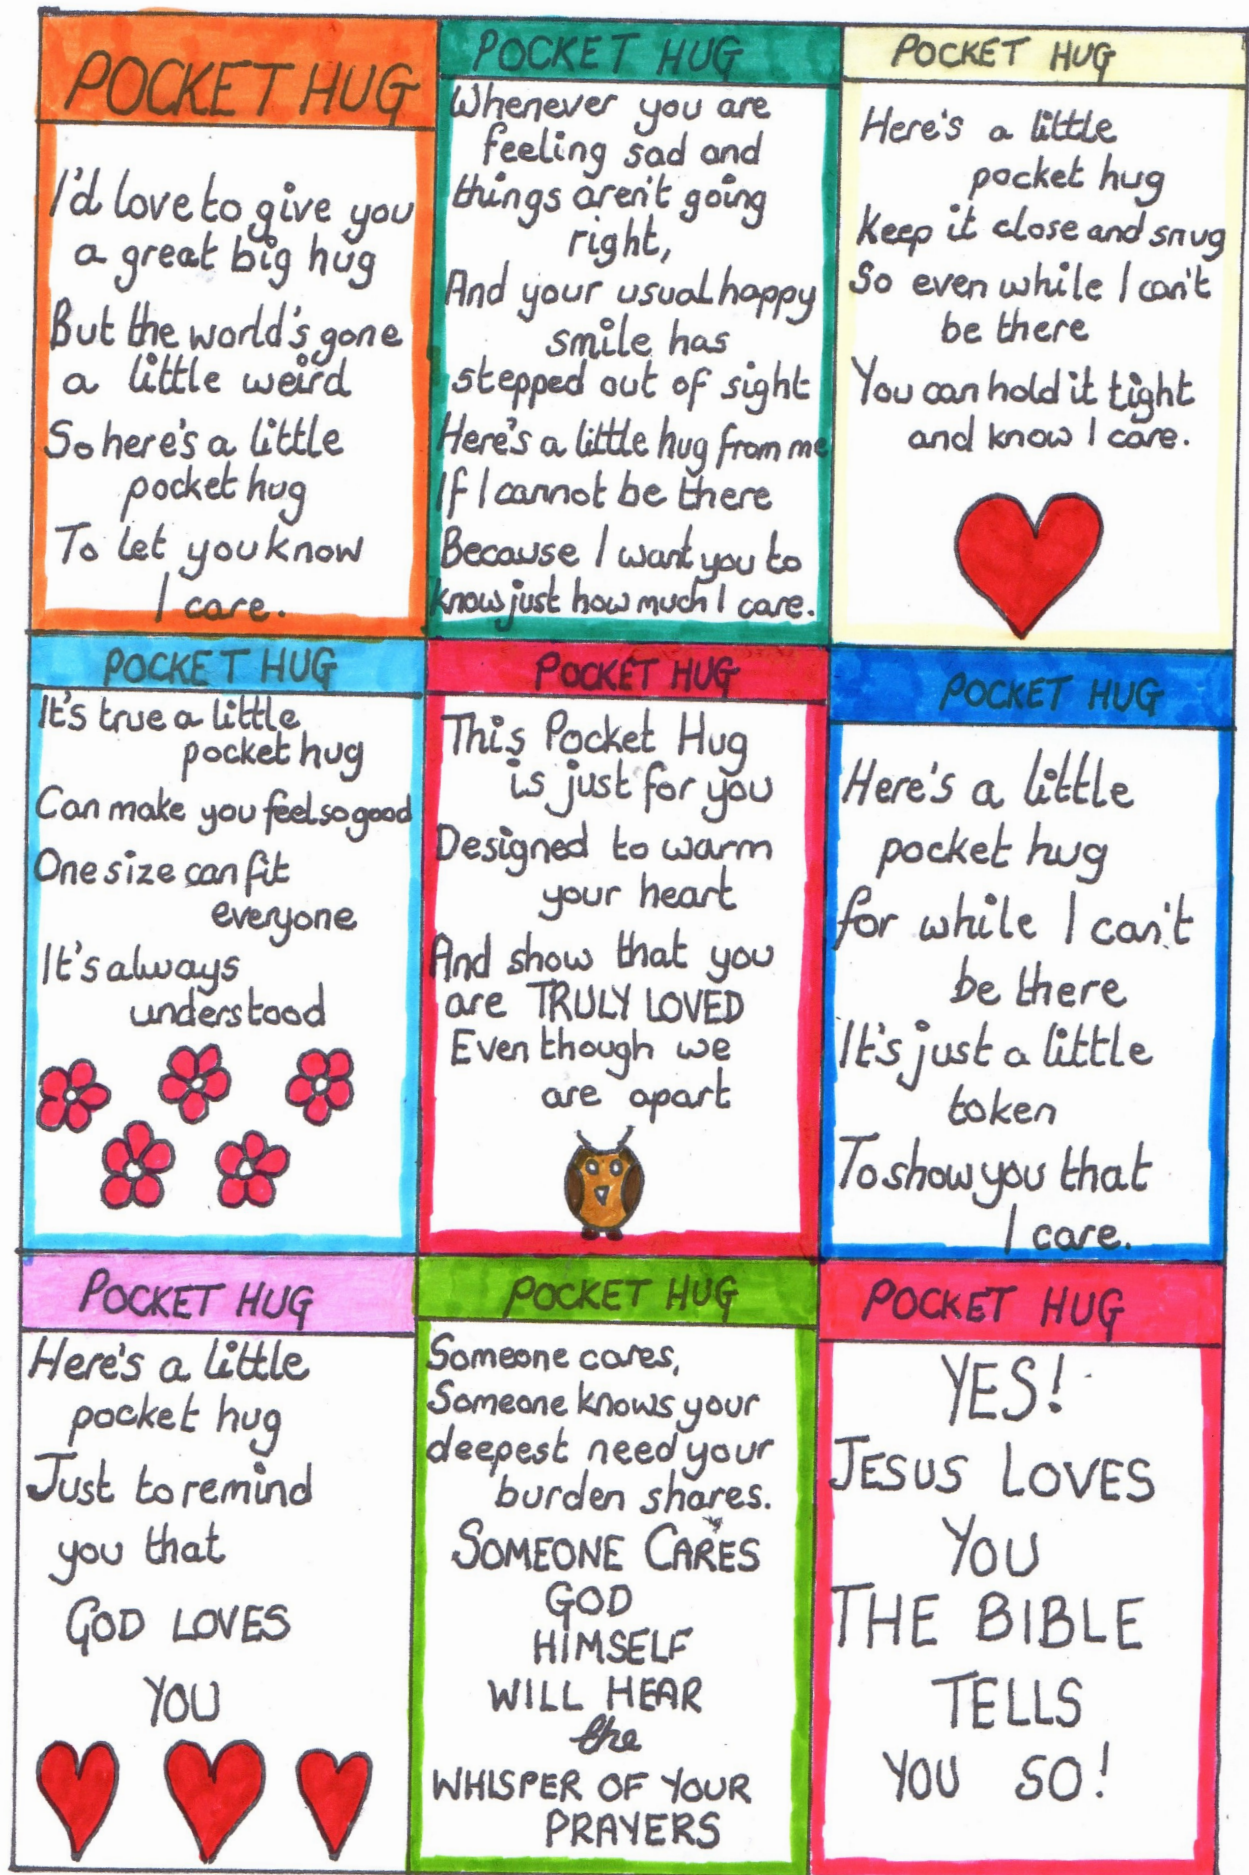 POCKET HUG
I'd love to give you
a great big hug
But the world's gone
a little weird
So here's a little
pocket hug
To let you know
I care.
POCKET HUG
Whenever you are
feeling sad and
things aren't going
right,
And your usual happy
smile has
stepped out of sight
Here's a little hug from me
If I cannot be there
Because I want you to
know just how much I care.
POCKET HUG
Here's a little
pocket hug
Keep it close and snug
So even while I can't
be there
You can hold it tight
and know I care.
POCKET HUG
It's true a little
pocket hug
Can make you feel so good
One size can fit
everyone
It's always
understood
POCKET HUG
This Pocket Hug
is just for you
Designed to warm
your heart
And show that you
are TRULY LOVED
Even though we
are apart
POCKET HUG
Here's a little
pocket hug
for while I can't
be there
It's just a little
token
To show you that
I care.
POCKET HUG
Here's a little
pocket hug
Just to remind
you that
GOD LOVES
YOU
POCKET HUG
Someone cares,
Someone knows your
deepest need your
burden shares.
SOMEONE CARES
GOD
HIMSELF
WILL HEAR
the
WHISPER OF YOUR
PRAYERS
POCKET HUG
YES!
JESUS LOVES
YOU
THE BIBLE
TELLS
YOU SO!